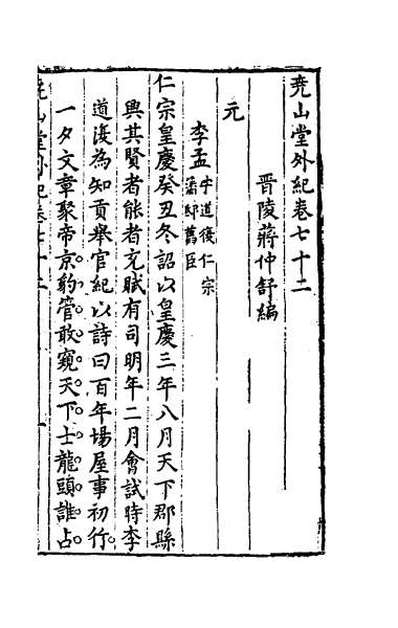 堯山堂外紀卷七十二
晉陵蔣仲舒編
元
李孟字道復仁宗
潘邸舊臣
仁宗皇慶癸丑冬詔以皇慶三年八月天下郡縣
興其賢者能者充賦有司明年二月會試時李
道復為知貢舉官紀以詩曰百年場屋事初行
一夕文章聚帝京豹管敢窺天下士龍頭誰占
堯山堂外紀卷七十二 一